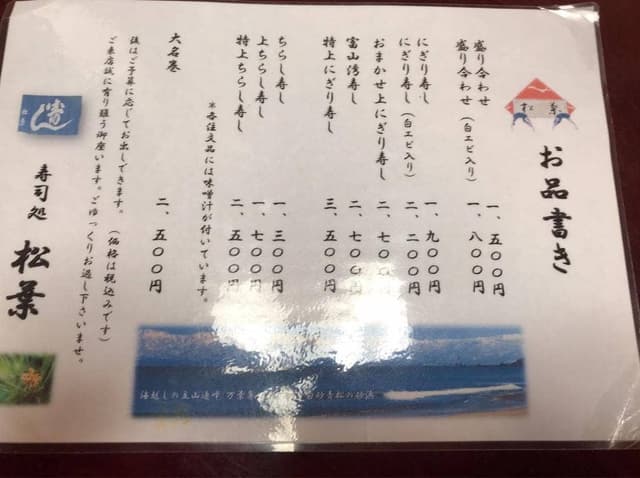 松葉
お品書き
盛り合わせ 一、五〇〇円
盛り合わせ（白エビ入り） 一、八〇〇円
にぎり寿し 一、九〇〇円
にぎり寿し（白エビ入り） 二、二〇〇円
おまかせ上にぎり寿し 二、七〇〇円
富山湾寿し 二、七〇〇円
特上にぎり寿し 三、五〇〇円
ちらし寿し 一、三〇〇円
上ちらし寿し 一、七〇〇円
特上ちらし寿し 二、五〇〇円
＊各注文品には味噌汁が付いています。
大名巻 二、五〇〇円
後はご予算に応じてお出しできます。（価格は税込みです）
ご来店誠に有り難う御座います。ごゆっくりお過し下さいませ。
寿司処 松葉
海越しの立山連峰 万葉
白砂青松の砂浜